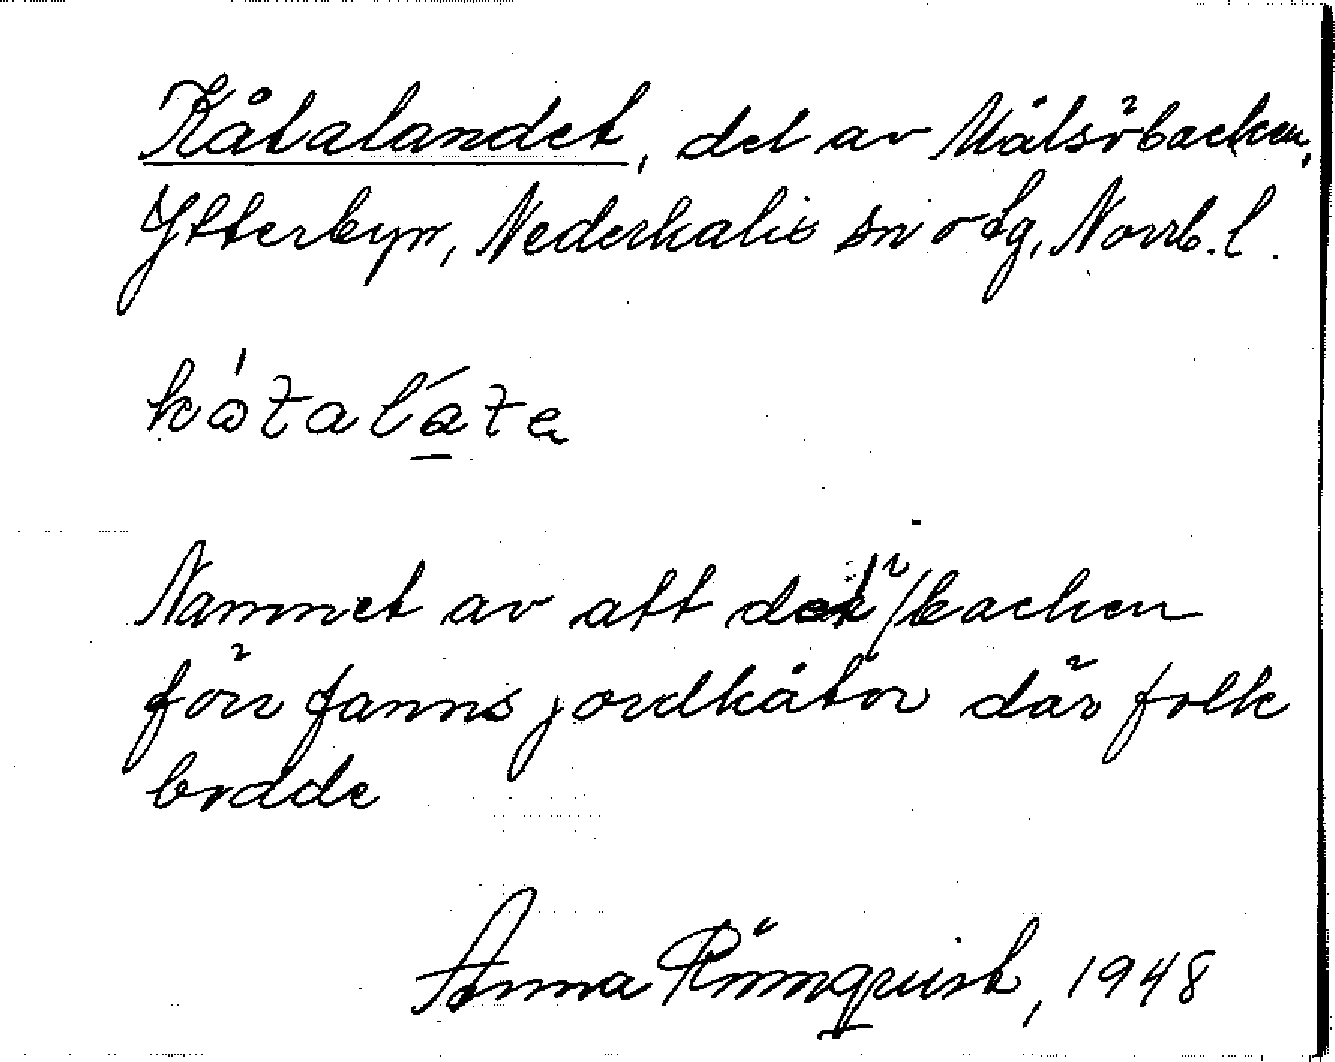 Kåtalandet, del av Målsöbacken,
Ytterbyn, Nederkalix sn o tg, Norrb. l.
kátaláta
Namnet av att det / backen
förr fanns jordkåtor där folk
bodde
Anna Rönnqvist, 1948